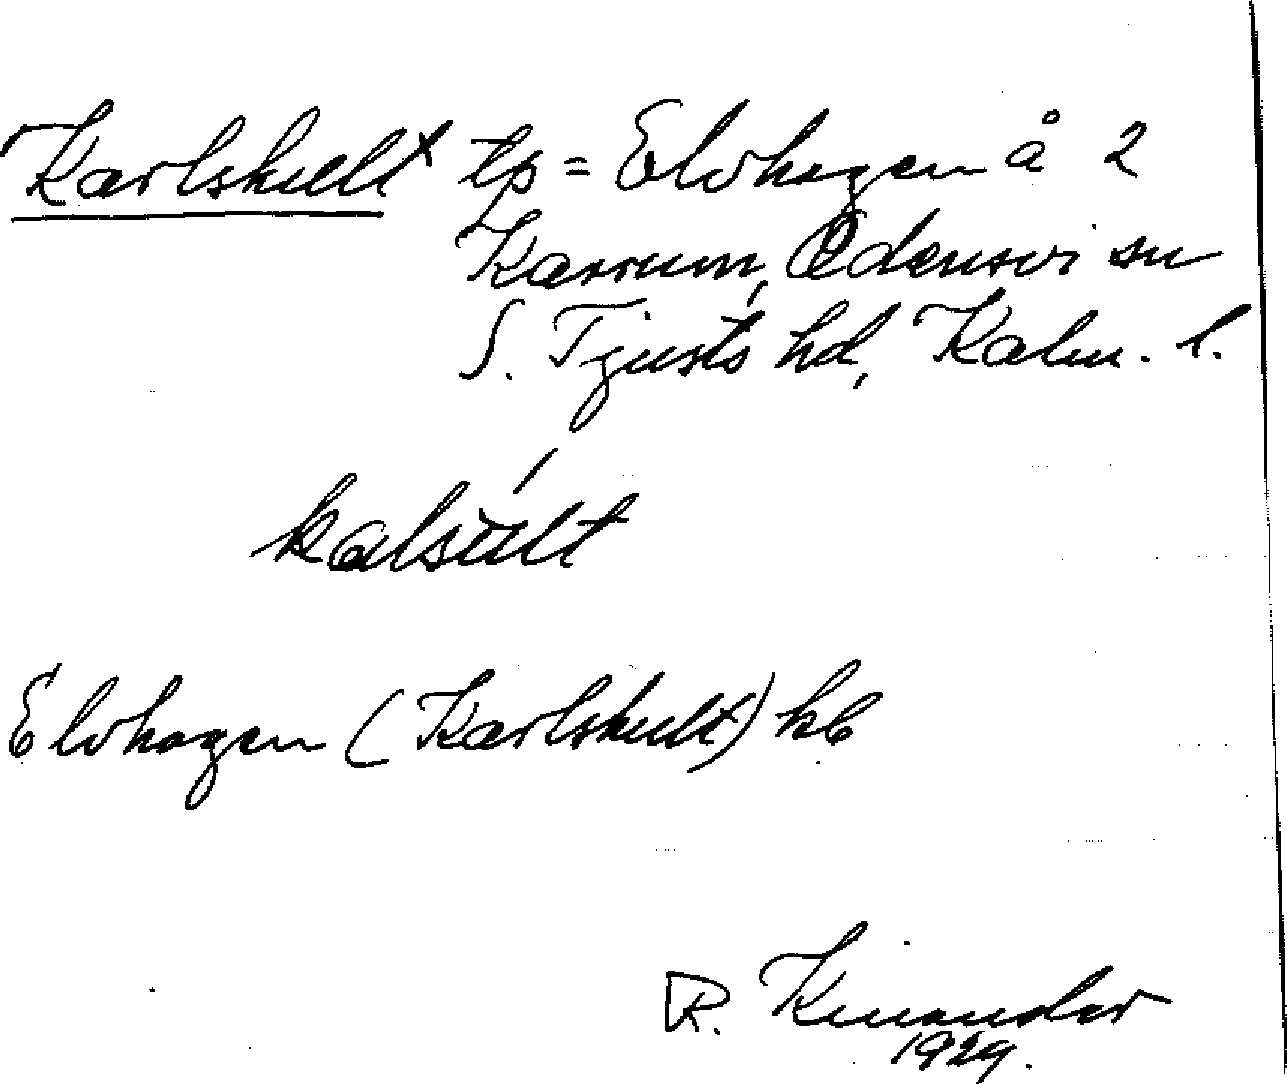 Karlskult x tp = Elvhagen å 2
Karrum, Odensvi sn
S. Tjusts hd, Kalm. l.
kalsult
Elvhagen (Karlskult) kb
R. Kinander
1929.